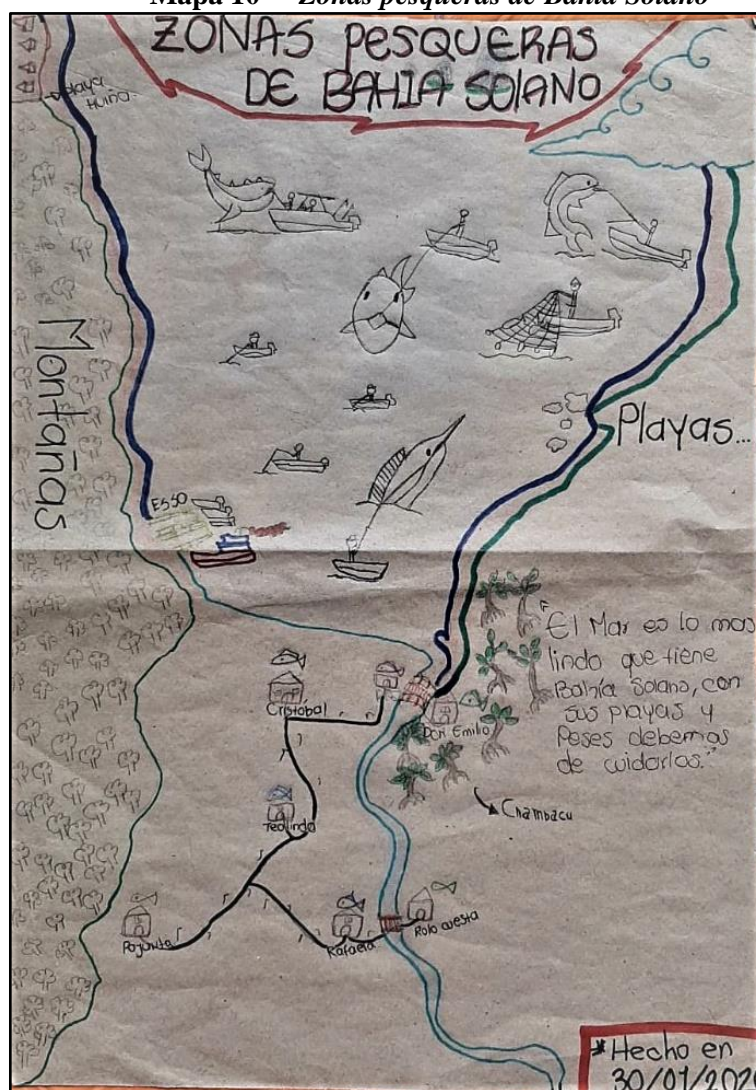 Mapa 10 Zonas pesqueras de Bahía Solano
ZONAS PESQUERAS
DE BAHIA SOLANO
Playa
Huina
Montañas
Playas...
ESSO
"El Mar es lo mas
lindo que tiene
Bahía Solano, con
sus playas y
Peses debemos
de cuidarlos."
Cristóbal
Don Emilio
Chambacu
Teolinda
Rafaela
Rolo cuesta
*Hecho en
30/01/202